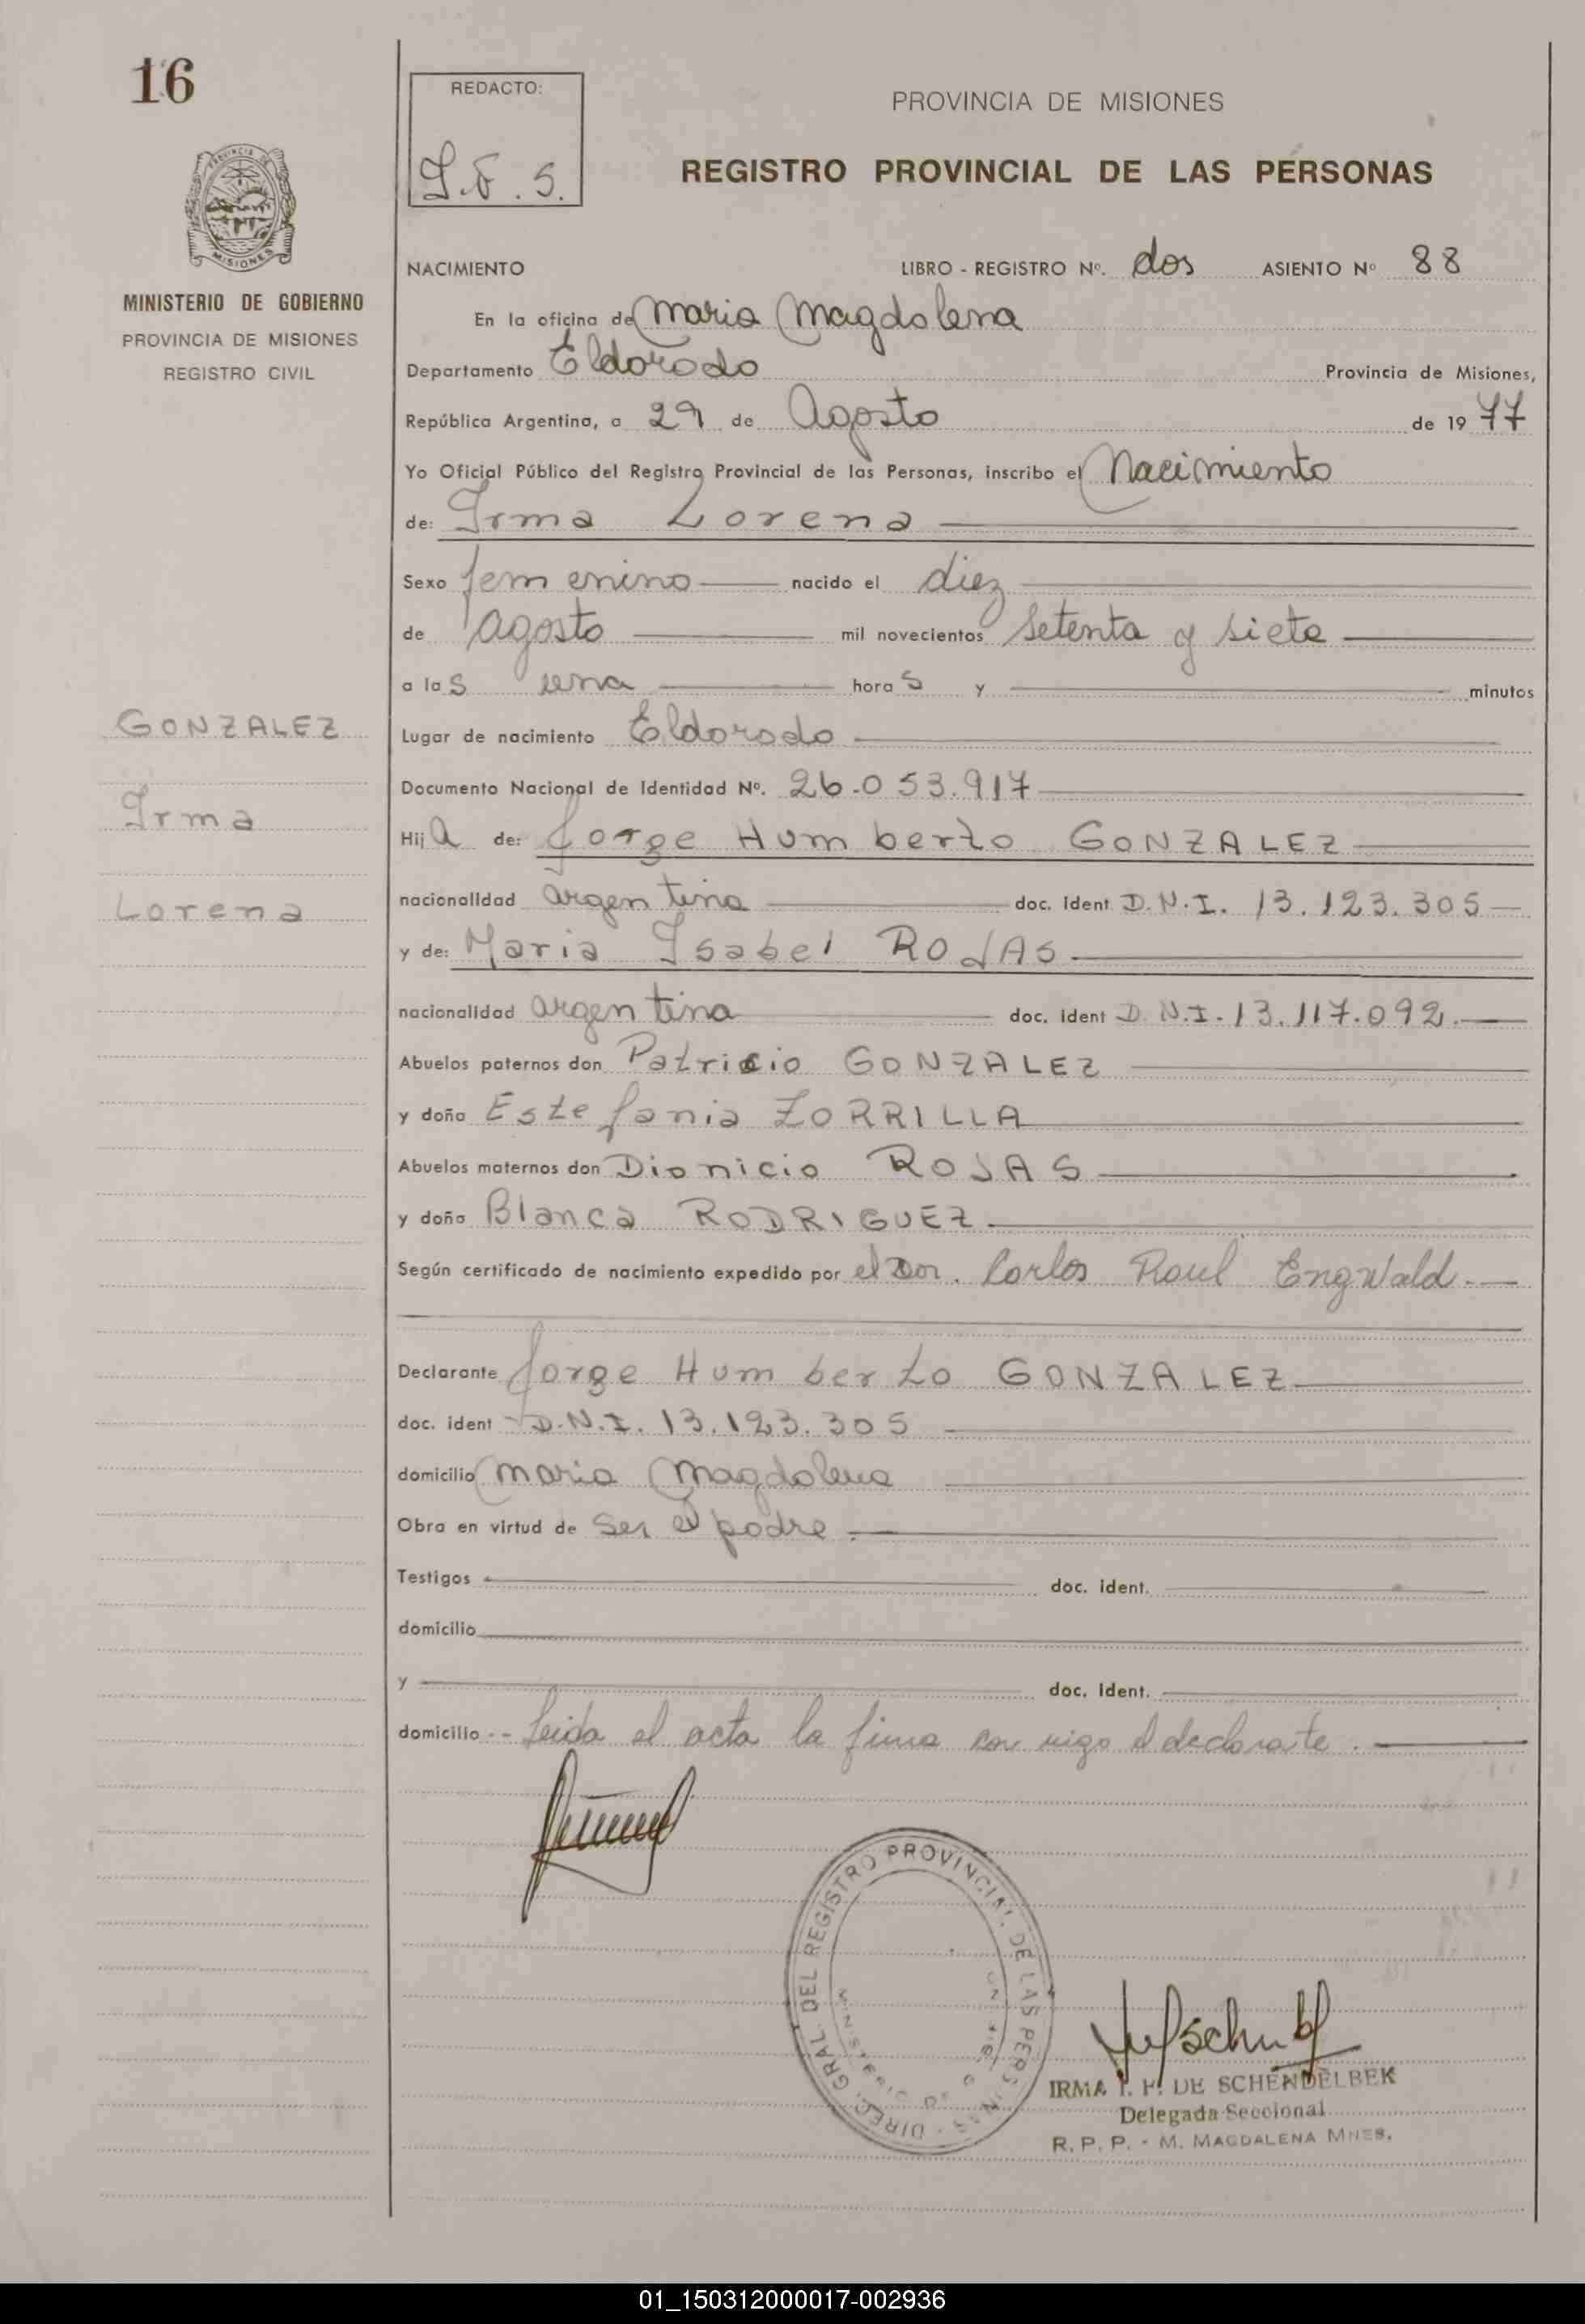 16
PROVINCIA DE
MISIONES
MINISTERIO DE GOBIERNO
PROVINCIA DE MISIONES
REGISTRO CIVIL
GONZALEZ
Irma
Lorena
REDACTO:
PROVINCIA DE MISIONES
REGISTRO PROVINCIAL DE LAS PERSONAS
NACIMIENTO LIBRO - REGISTRO Nº. dos ASIENTO Nº 88
En la oficina de Maria Magdalena
Departamento Eldorado Provincia de Misiones,
República Argentina, a 29 de Agosto de 1977
Yo Oficial Público del Registro Provincial de las Personas, inscribo el Nacimiento
de: Irma Lorena
Sexo femenino nacido el diez
de agosto mil novecientos setenta y siete
a las una horas y minutos
Lugar de nacimiento Eldorado
Documento Nacional de Identidad Nº. 26.053.917
Hija de: Jorge Humberto GONZALEZ
nacionalidad argentina doc. ident D.N.I. 13.123.305
y de: Maria Isabel ROJAS
nacionalidad argentina doc. ident D.N.I. 13.117.092.
Abuelos paternos don Patricio GONZALEZ
y doña Estefania ZORRILLA
Abuelos maternos don Dionicio ROJAS
y doña Blanca RODRIGUEZ.
Según certificado de nacimiento expedido por el Dor. Carlos Raul Engwald.
Declarante Jorge Humberto GONZALEZ
doc. ident D.N.I. 13.123.305
domicilio Maria Magdalena
Obra en virtud de ser el padre.
Testigos doc. ident.
domicilio
y doc. ident.
domicilio Leida el acta la firma conmigo el declarante.
DIREC. GRAL. DEL REGISTRO PROVINCIAL DE LAS PERSONAS
IRMA I. F. DE SCHENDELBEK
Delegada Seccional
R. P. P. - M. MAGDALENA MNES.
01_150312000017-002936